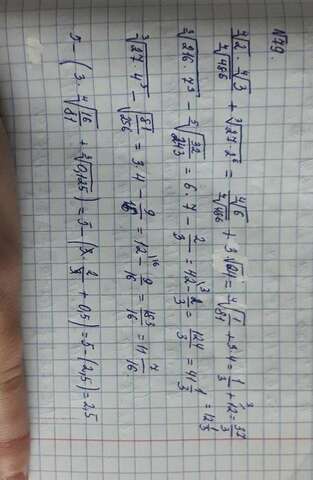 N79.
\frac{\sqrt[4]{2} \cdot \sqrt[4]{3}}{\sqrt[4]{486}} + \sqrt[3]{27 \cdot 2^6} = \frac{\sqrt[4]{6}}{\sqrt[4]{486}} + 3\sqrt[3]{64} = \sqrt[4]{\frac{1}{81}} + 3 \cdot 4 = \frac{1}{3} + 12 = \frac{37}{3}
= 12\frac{1}{3}
\sqrt[3]{216 \cdot 7^3} - \sqrt[5]{\frac{32}{243}} = 6 \cdot 7 - \frac{2}{3} = 42 - \frac{2}{3} = \frac{124}{3} = 41\frac{1}{3}
\sqrt[3]{27 \cdot 4^3} - \sqrt{\frac{81}{256}} = 3 \cdot 4 - \frac{9}{16} = 12 - \frac{9}{16} = \frac{183}{16} = 11\frac{7}{16}
5 - (3 \cdot \sqrt[4]{\frac{16}{81}} + \sqrt[3]{0,125}) = 5 - (3 \cdot \frac{2}{3} + 0,5) = 5 - (2,5) = 2,5